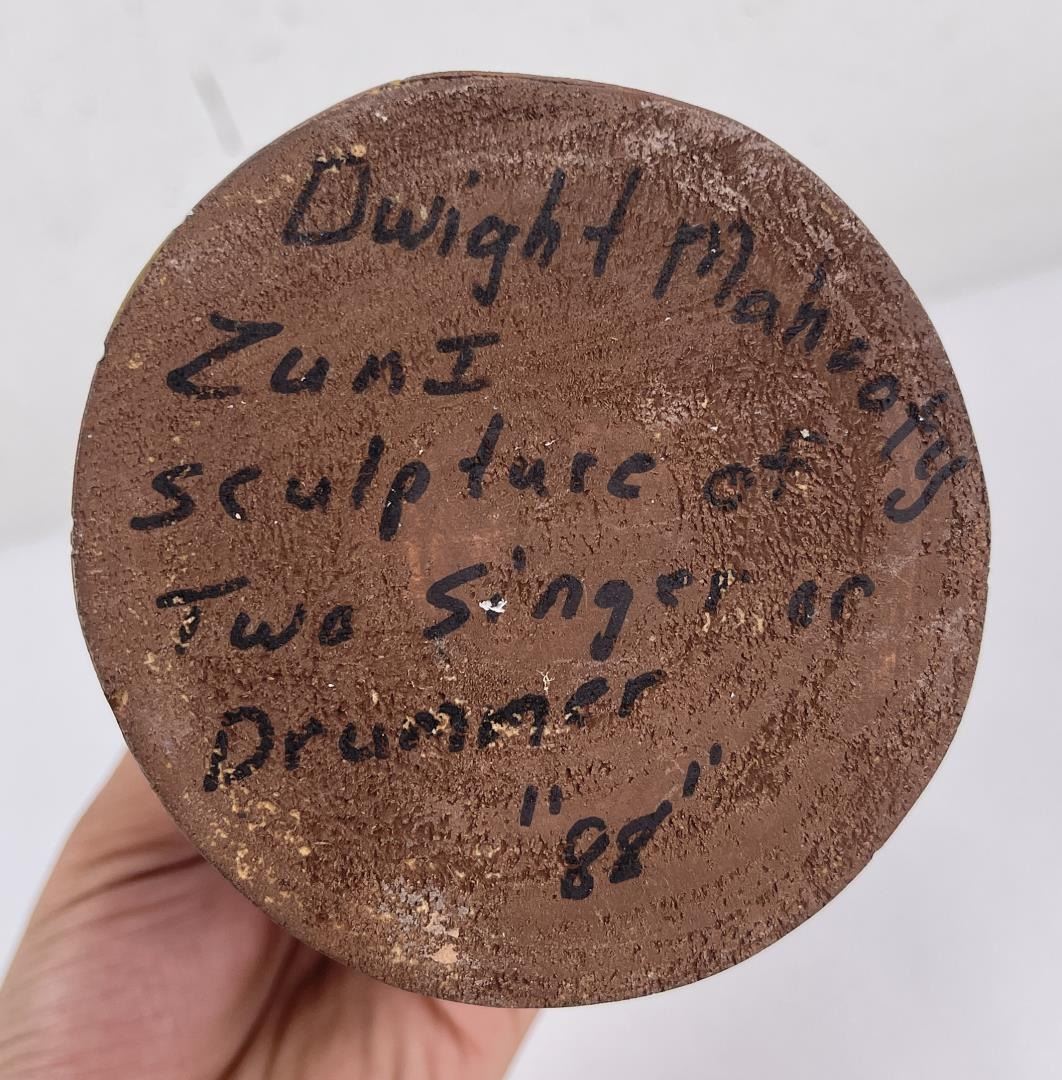 Dwight Mahooty
ZunI
sculpture of
Two Singer or
Drummer
"88"